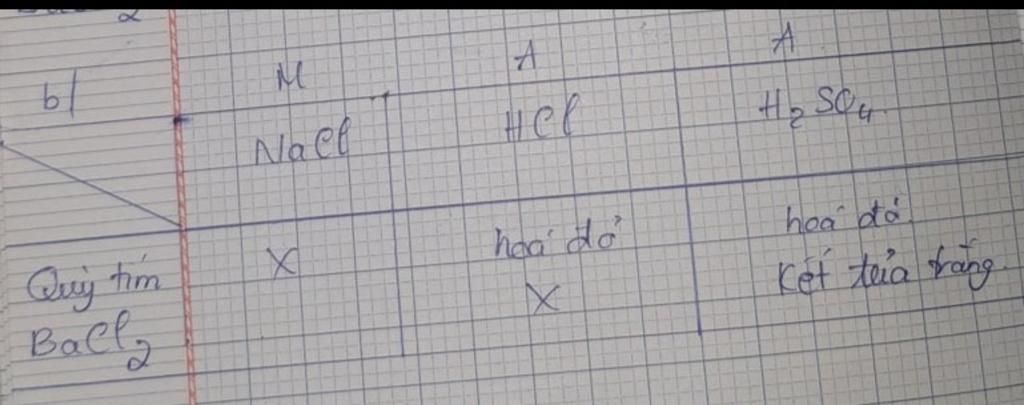 b/
M A A
NaCl HCl H₂SO₄
Quỳ tím X hoá đỏ hoá đỏ
BaCl₂ X Kết tủa trắng